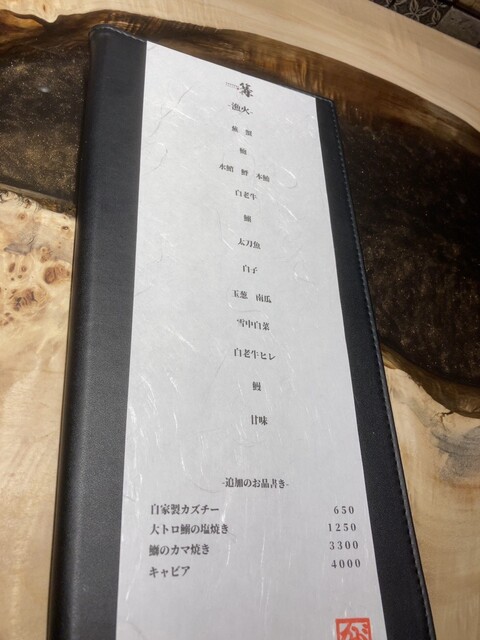 -漁火-
白老牛
鰤
太刀魚
白子
玉葱 南瓜
雪中白菜
白老牛ヒレ
鰻
甘味
-追加のお品書き-
自家製カズチー 650
大トロ鰤の塩焼き 1250
鰤のカマ焼き 3300
キャビア 4000